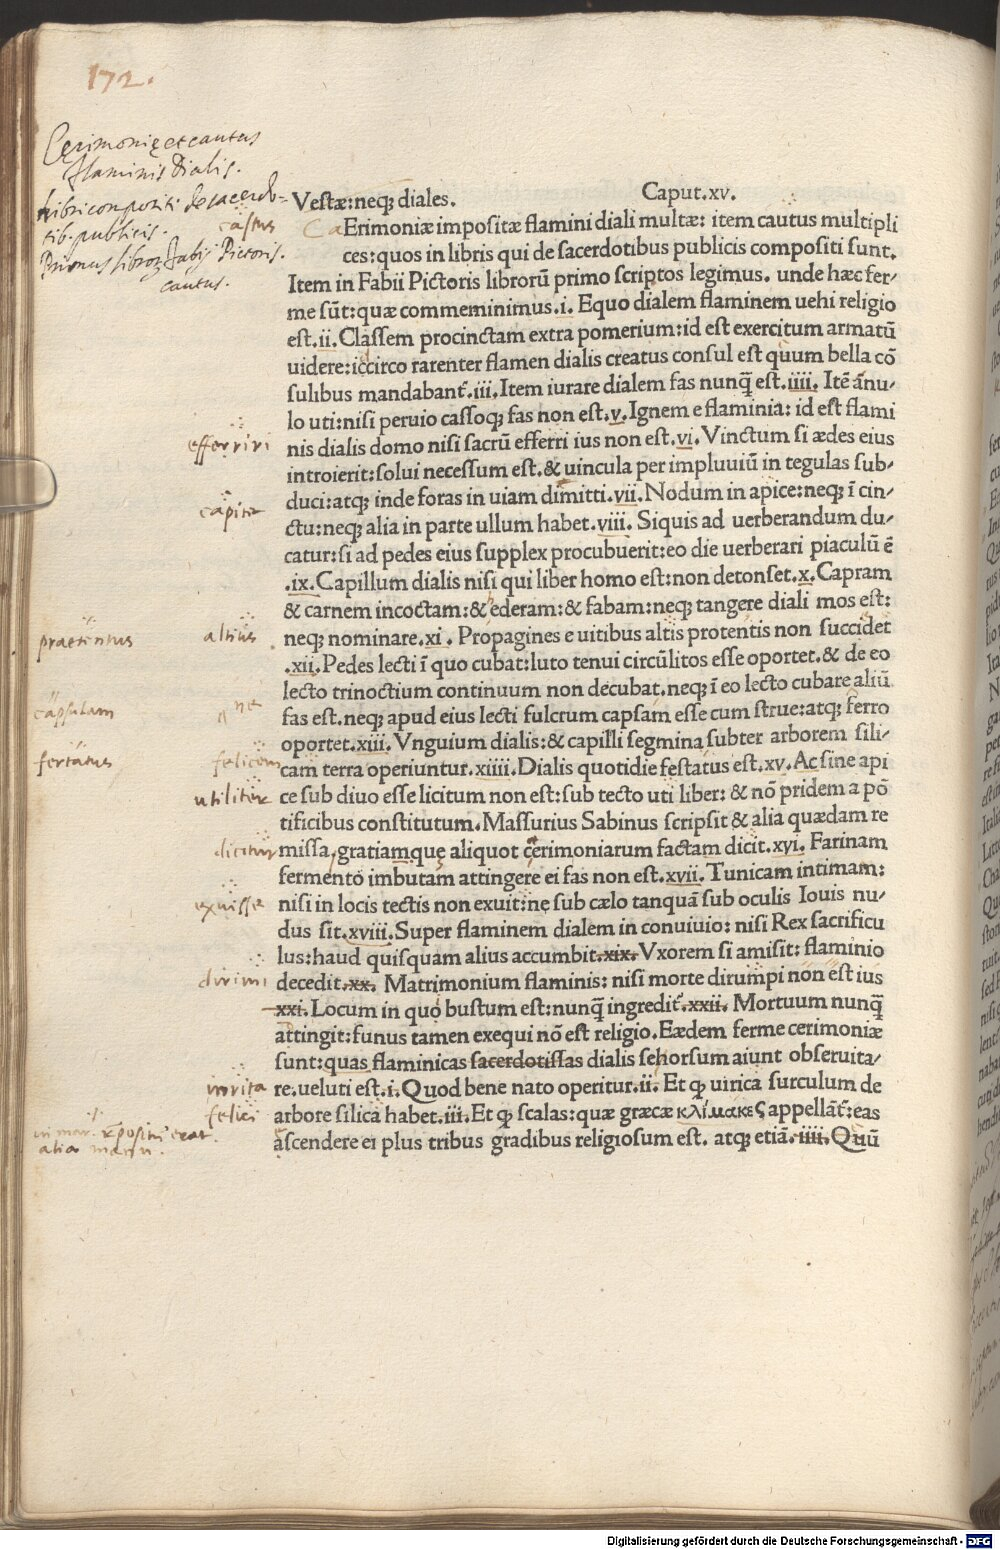 172.
Cęrimonię et cautus
flaminis Dialis.
Libri compositi de sacerdo-
tib. publicis.
castus
Primus libroꝝ Fabij Pictoris.
cautus.
Vestæ:neqꝫ diales. Caput.xv.
Ca Erimoniæ impositæ flamini diali multæ: item cautus multipli
ces:quos in libris qui de sacerdotibus publicis compositi sunt.
Item in Fabii Pictoris librorū primo scriptos legimus. unde hæc fer/
me sūt:quæ commeminimus.i. Equo dialem flaminem uehi religio
est.ii. Classem procinctam extra pomerium:id est exercitum armatū
uidere:iccirco rarenter flamen dialis creatus consul est quum bella cō
sulibus mandabant᷑.iii.Item iurare dialem fas nunq̄ est.iiii. Itē ānu/
lo uti:nisi peruio cassoqꝫ fas non est.v.Ignem e flaminia: id est flami
efferriri
nis dialis domo nisi sacrū efferri ius non est.vi.Vinctum si ædes eius
introierit:solui necessum est.& uincula per impluuiū in tegulas sub/
duci:atqꝫ inde foras in uiam dimitti.vii.Nodum in apice:neqꝫ ī cin/
capite
ctu:neqꝫ alia in parte ullum habet.viii. Siquis ad uerberandum du/
catur:si ad pedes eius supplex procubuerit:eo die uerberari piaculū ē
.ix.Capillum dialis nisi qui liber homo est:non detonset.x.Capram
& carnem incoctam:& ederam:& fabam:neqꝫ tangere diali mos est:
praetentus altius
neqꝫ nominare.xi . Propagines e uitibus altis protentis non succidet
.xii.Pedes lecti ī quo cubat:luto tenui circūlitos esse oportet.& de eo
lecto trinoctium continuum non decubat.neqꝫ ī eo lecto cubare aliū
capsulam ne
fas est.neqꝫ apud eius lecti fulcrum capsam esse cum strue:atqꝫ ferro
oportet.xiii.Vnguium dialis:& capilli segmina subter arborem sili/
feriatus felicem
cam terra operiuntur.xiiii.Dialis quotidie festatus est.xv.Ac sine api
utilitur
ce sub diuo esse licitum non est:sub tecto uti liber: & nō pridem a pō
tificibus constitutum.Massurius Sabinus scripsit & alia quædam re
dicitur
missa,gratiamque aliquot cerimoniarum factam dicit.xvi. Farinam
fermento imbutam attingere ei fas non est.xvii.Tunicam intimam:
exuisse
nisi in locis tectis non exuit:ne sub cælo tanquā sub oculis Iouis nu/
dus sit.xviii.Super flaminem dialem in conuiuio: nisi Rex sacrificu
lus:haud quisquam alius accumbit.xix.Vxorem si amisit: flaminio
dirimi
decedit.xx. Matrimonium flaminis: nisi morte dirumpi non est ius
xxi.Locum in quo bustum est:nunq̄ ingredit᷑.xxii. Mortuum nunq̄
attingit:funus tamen exequi nō est religio.Eædem ferme cerimoniæ
sunt:quas flaminicas sacerdotissas dialis sehorsum aiunt obseruita/
in rita
re.ueluti est.i.Quod bene nato operitur.ii. Et ꝙ uirica surculum de
felici
arbore silica habet.iii.Et ꝙ scalas:quæ græcæ κλίμακες appellāt᷑:eas
alia manu.
ascendere ei plus tribus gradibus religiosum est. atqꝫ etiā.iiii.Quū
Digitalisierung gefördert durch die Deutsche Forschungsgemeinschaft - DFG